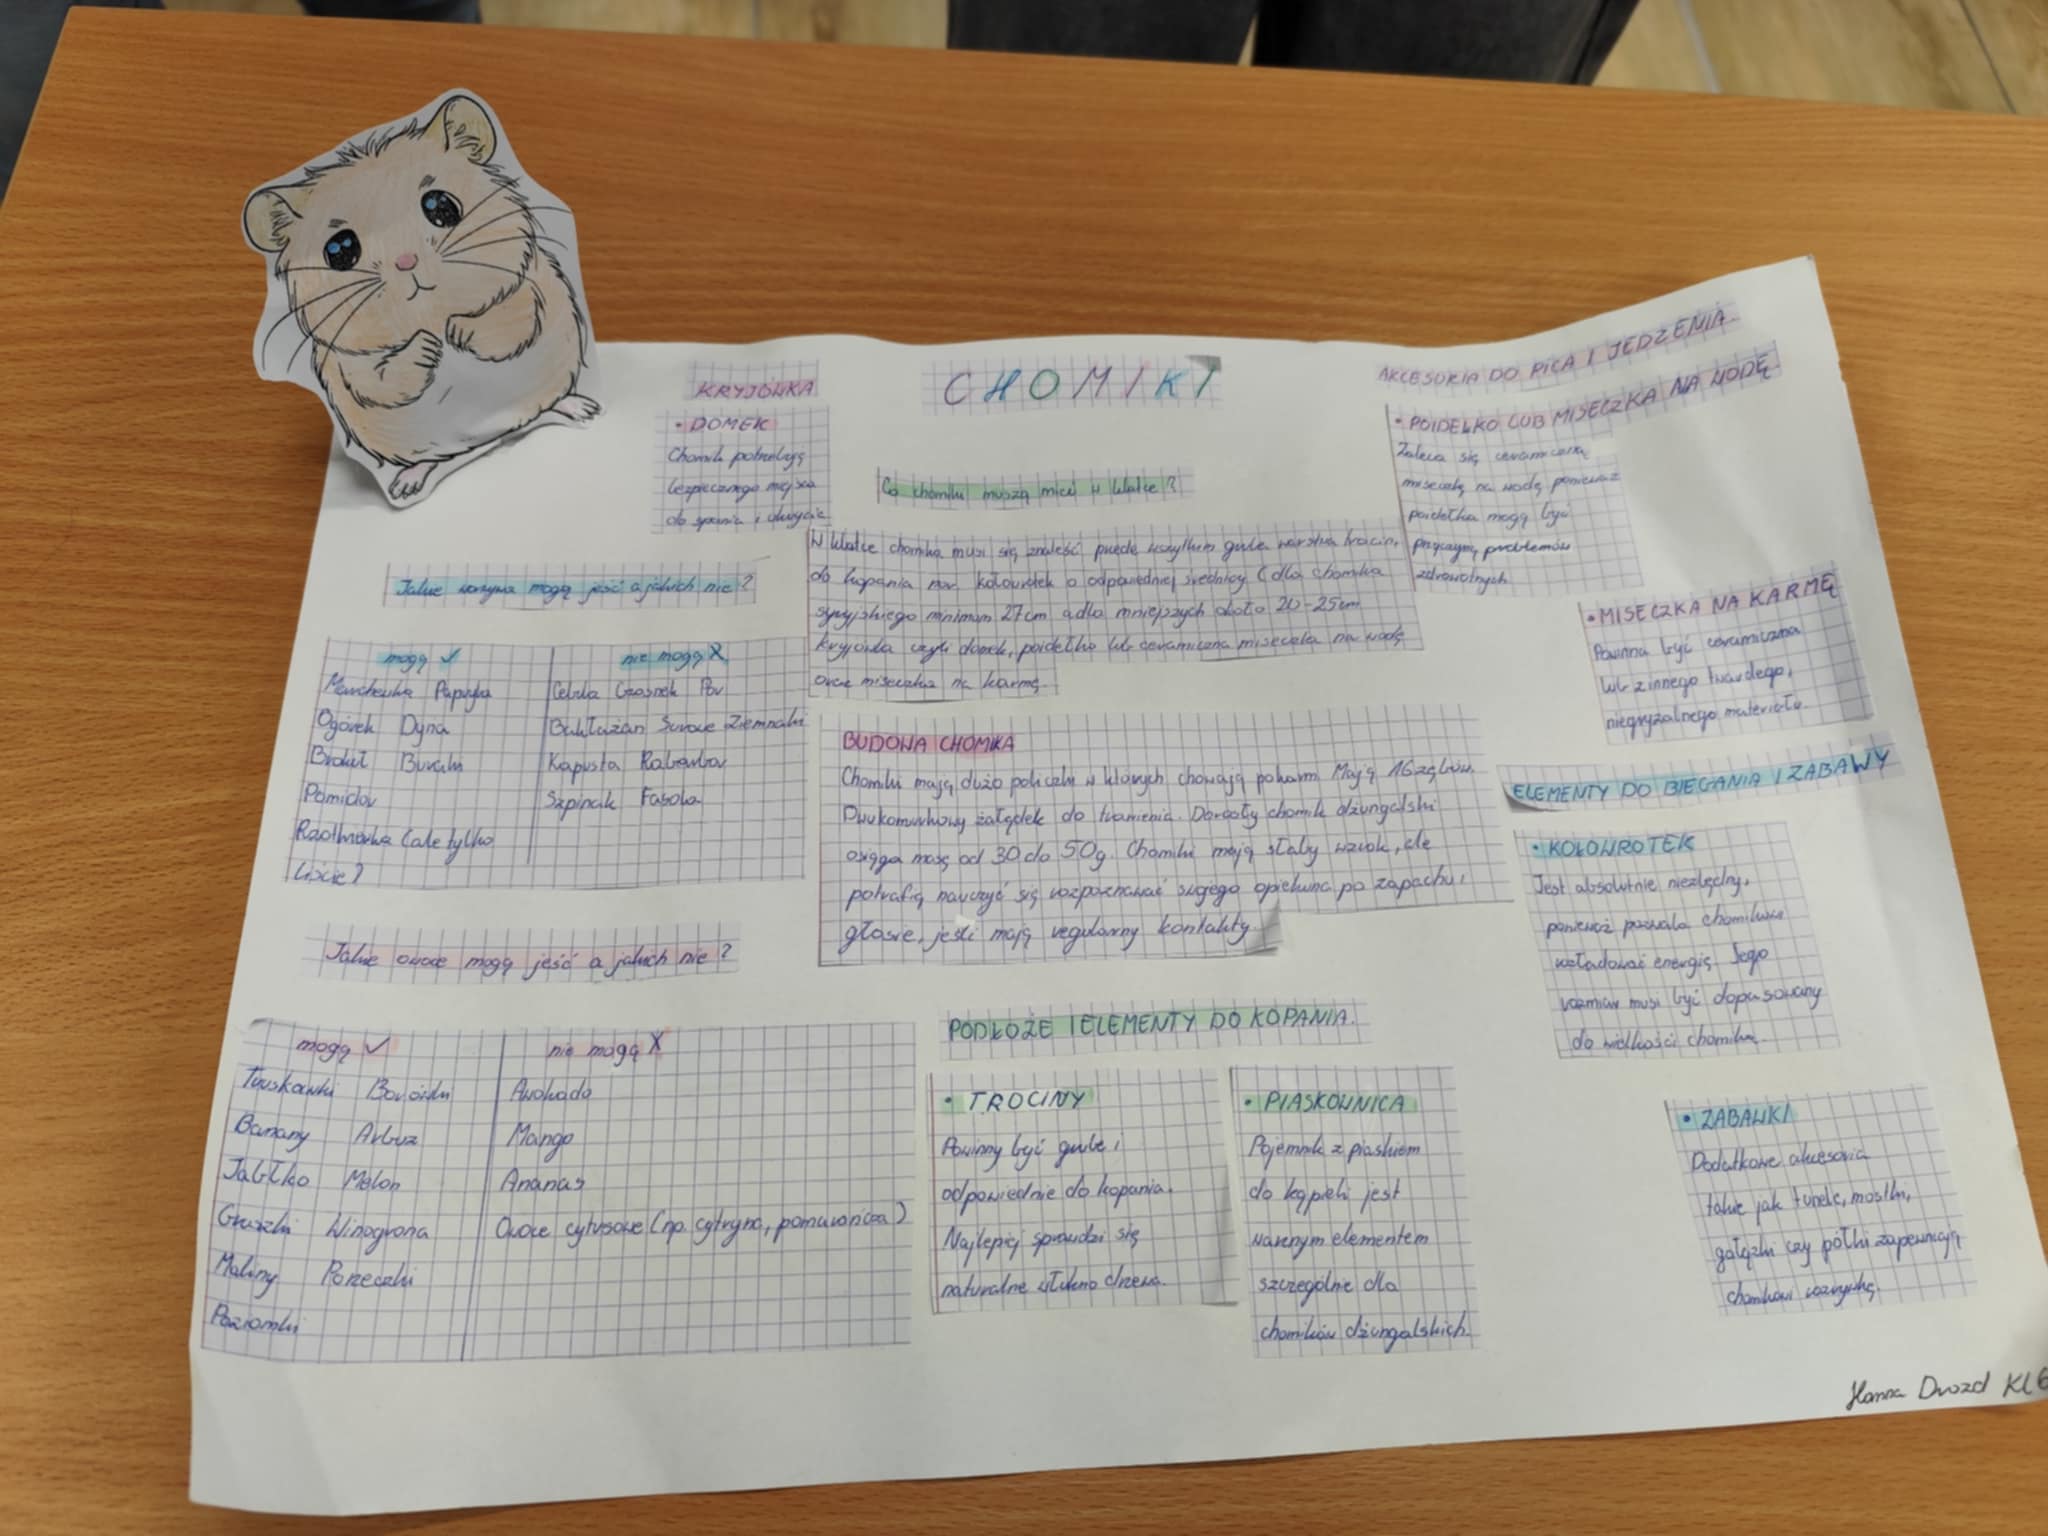 CHOMIKI
KRYJÓWKA
• DOMEK
Chomik potrzebują
bezpiecznego miejsca
do spania i ukrycia
Co chomiki muszą mieć w klatce?
W klatce chomika musi się znaleść przede wszytkim gruba warstwa trocin,
do kopania nor, kołowrotek o odpowiedniej średnicy (dla chomika
syryjskiego minimum 27cm a dla mniejszych około 20-25cm
kryjówka czyli domek, poidełko lub ceramiczna miseczka na wodę
oraz miseczka na karmę.
Jakie warzywa mogą jeść a jakich nie?
mogą ✓ nie mogą X
Marchewka Papryka Cebula Czosnek Por
Ogórek Dynia Bakłażan Surowe Ziemniaki
Brokuł Buraki Kapusta Rabarbar
Pomidor Szpinak Fasola
Rzodkiewka (ale tylko
liście)
BUDOWA CHOMIKA
Chomiki mają dużo policzki w których chowają pokarm. Mają 16 zębów.
Dwukomorkowy żołądek do trawienia. Dorosły chomik dżungalski
osiąga masę od 30 do 50g. Chomiki mają słaby wzrok, ale
potrafią nauczyć się rozpoznawać swojego opiekuna po zapachu i
głosie, jeśli mają regularny kontakty.
Jakie owoce mogą jeść a jakich nie?
mogą ✓ nie mogą X
Truskawki Borówki Awokado
Banany Arbuz Mango
Jabłko Melon Ananas
Gruszki Winogrona Owoce cytrusowe (np. cytryna, pomarańcza)
Maliny Porzeczki
Poziomki
PODŁOŻE I ELEMENTY DO KOPANIA.
• TROCINY
Powinny być grube i
odpowiednie do kopania.
Najlepiej sprawdzi się
naturalne włókno drzewa.
• PIASKOWNICA
Pojemnik z piaskiem
do kąpieli jest
ważnym elementem
szczególnie dla
chomików dżungalskich.
AKCESORIA DO PICA I JEDZENIA.
• POIDEŁKO LUB MISECZKA NA WODĘ
Zaleca się ceramiczną
miseczkę na wodę ponieważ
poidełka mogą być
przyczyną problemów
zdrowotnych
• MISECZKA NA KARMĘ
Powinna być ceramiczna
lub z innego twardego,
niegryzalnego materiału.
ELEMENTY DO BIEGANIA I ZABAWY
• KOŁOWROTEK
Jest absolutnie niezbędny,
ponieważ pozwala chomikowi
rozładować energię. Jego
rozmiar musi być dopasowany
do wielkości chomika.
• ZABAWKI
Dodatkowe akcesoria
takie jak tunele, mostki,
gałązki czy półki zapewniają
chomikowi rozrywkę.
Hanna Drozd Kl 6